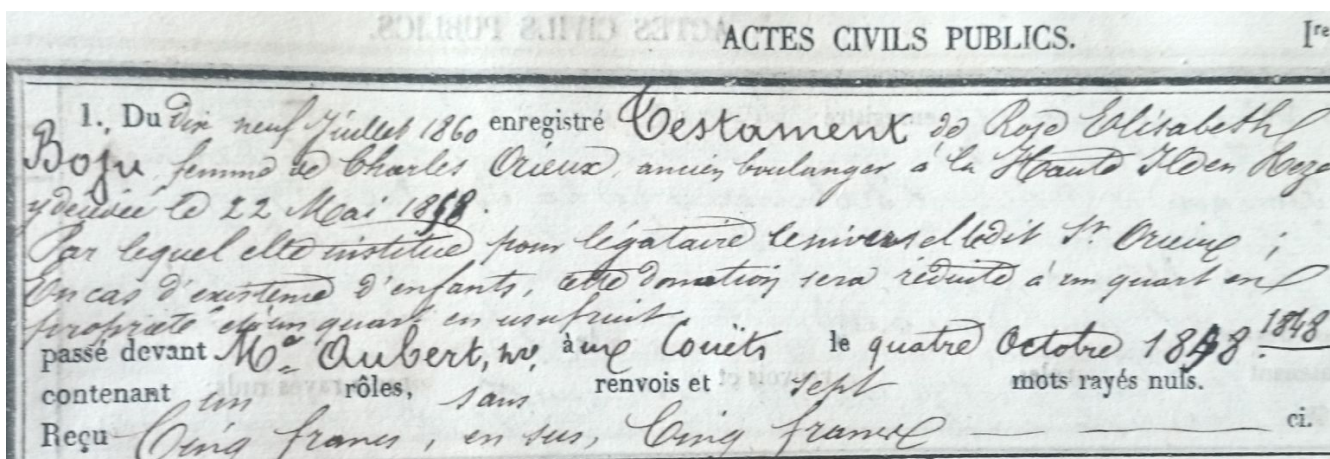 ACTES CIVILS PUBLICS. Ire
1. Du dix neuf Juillet 1860 enregistré Testament de Rose Elisabeth
Boju, femme de Charles Orieux, ancien boulanger à la Haute Ile en Rezé
y décédée le 22 Mai 1858.
Par lequel elle institue pour légataire universel ledit Sr Orieux ;
En cas d'existence d'enfants, cette donation sera réduite à un quart en
propriété et à un quart en usufruit.
passé devant Me Aubert, nre aux Couëts le quatre Octobre 1848. 1848
contenant un rôles, sans renvois et sept mots rayés nuls.
Reçu Cinq francs, en sus, Cinq francs ci.